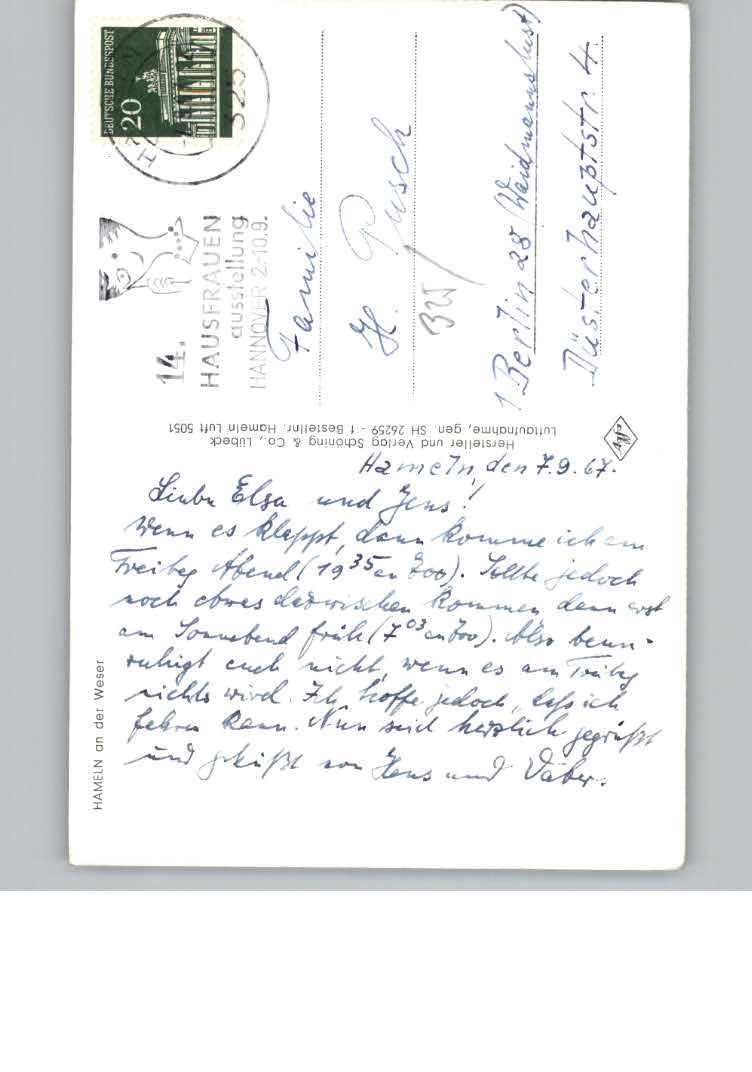 HAMELN an der Weser
Hameln, den 7.9.67.
Liebe Elsa und Jens!
Wenn es klappt, dann komme ich am
Freitag Abend (19³⁵ an Zoo). Sollte jedoch
noch etwas dazwischen kommen dann erst
am Sonnabend früh (7⁰³ an Zoo). Also beun-
ruhigt euch nicht, wenn es am Freitag
nichts wird. Ich hoffe jedoch, daß ich
fahren kann. Nun seid herzlich gegrüßt
und geküßt von Hans und Vater.
Hersteller und Verlag Schöning & Co., Lübeck
Luftaufnahme, gen. SH 26259 - 1 Bestellnr. Hameln Luft 5051
DEUTSCHE BUNDESPOST
20
325
14.
HAUSFRAUEN
ausstellung
HANNOVER 2.-10.9.
Familie
H. Pusch
325
1 Berlin 28 (Waidmannslust)
Düsterhauptstr. 4.